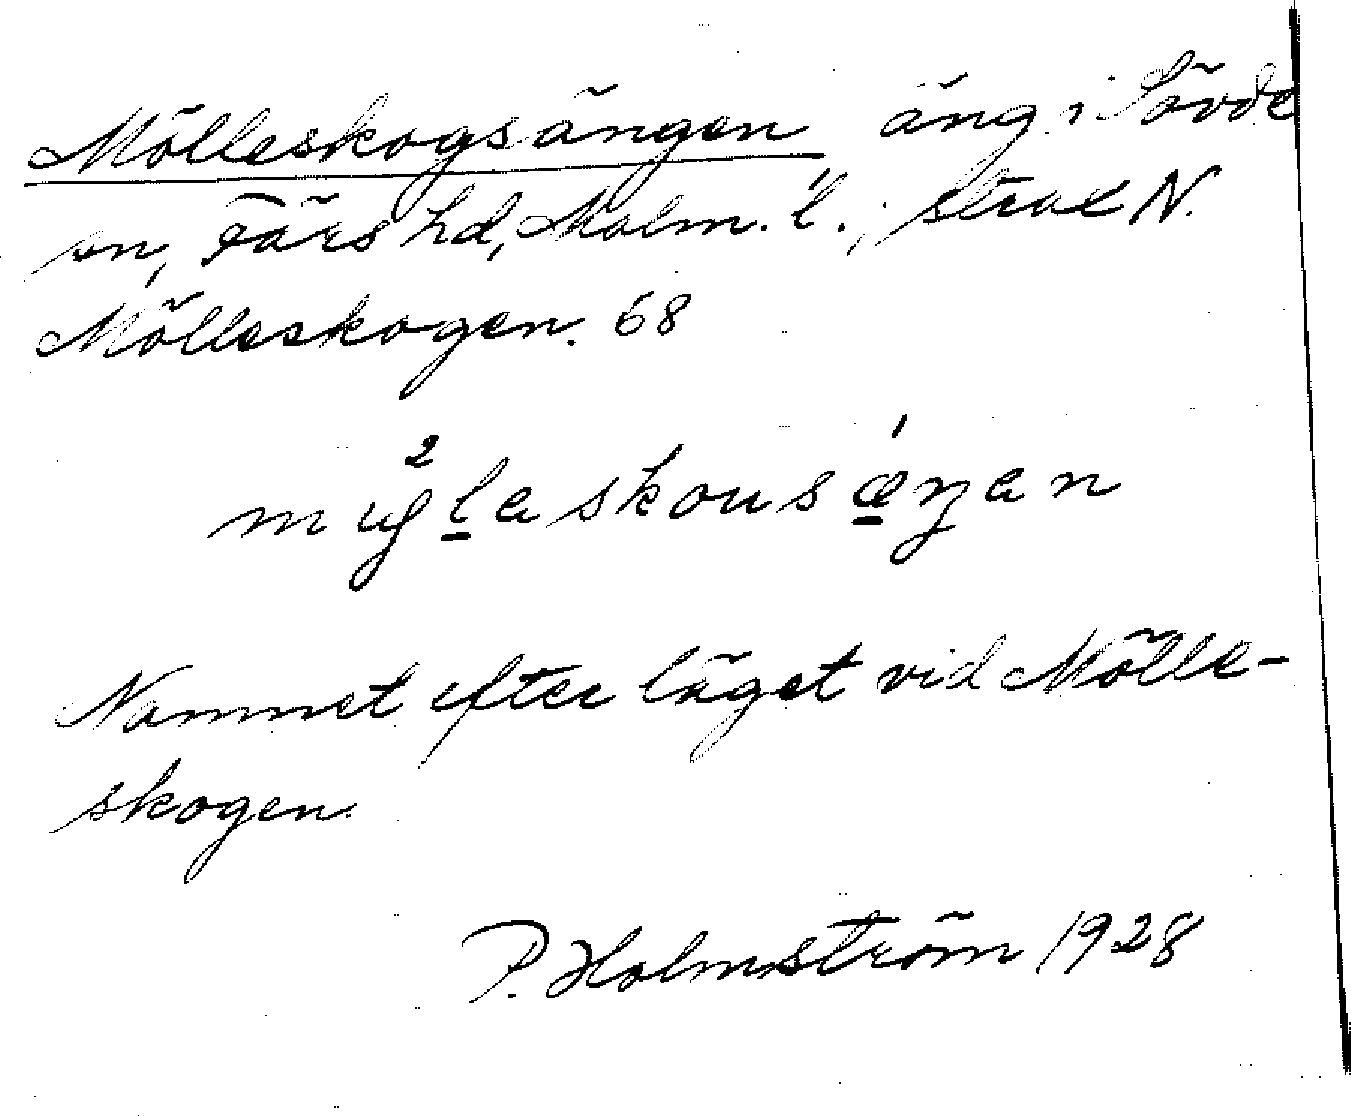 Mölleskogsängen, äng i Sövde
sn, Färs hd, Malm. l.; strax N.
Mölleskogen. 68
Namnet efter läget vid Mölle-
skogen.
P. Holmström 1928